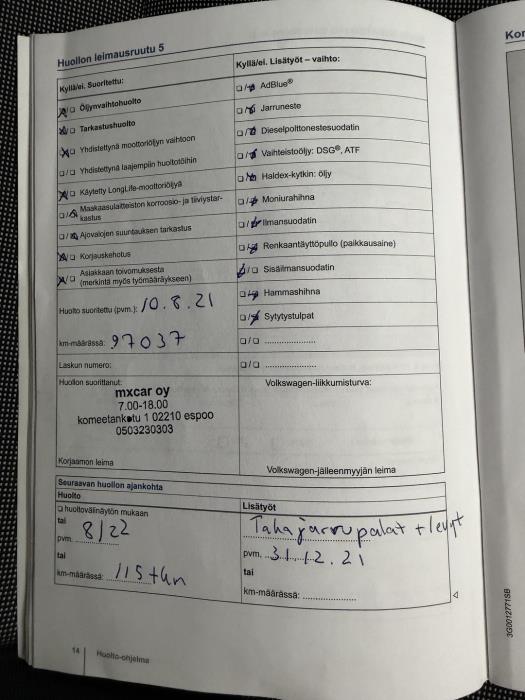 Huollon leimausruutu 5
Kyllä/ei. Suoritettu:
Öljynvaihtohuolto
Tarkastushuolto
Yhdistettynä moottoriöljyn vaihtoon
Yhdistettynä laajempiin huoltotöihin
Käytetty LongLife-moottoriöljyä
Maskaasulaitteiston korroosio- ja tiiviystar-
kastus
Ajovalojen suuntauksen tarkastus
Korjauskehotus
Asiakkaan toivomuksesta
(merkintä myös työmääräykseen)
Huolto suoritettu (pvm.): 10.8.21
km-määrässä: 97037
Laskun numero:
Huollon suorittanut:
mxcar oy
7.00-18.00
komeetankatu 1 02210 espoo
0503230303
Korjaamon leima
Kyllä/ei. Lisätyöt – vaihto:
AdBlue®
Jarruneste
Dieselpolttonestesuodatin
Vaihteistoöljy: DSG®, ATF
Haldex-kytkin: öljy
Moniurahihna
Ilmansuodatin
Renkaantäyttöpullo (paikkausaine)
Sisäilmansuodatin
Hammashihna
Sytytystulpat
☐/☐ .....................
☐/☐ .....................
Volkswagen-liikkumisturva:
Volkswagen-jälleenmyyjän leima
Seuraavan huollon ajankohta
Huolto
☐ huoltovälinäytön mukaan
tai
pvm. 8/22
tai
km-määrässä: 115 tkm
Lisätyöt
Takajarrupalat + levyt
pvm. 31.12.21
tai
km-määrässä: .....................
14 Huolto-ohjelma
3G0012771SB
Kor